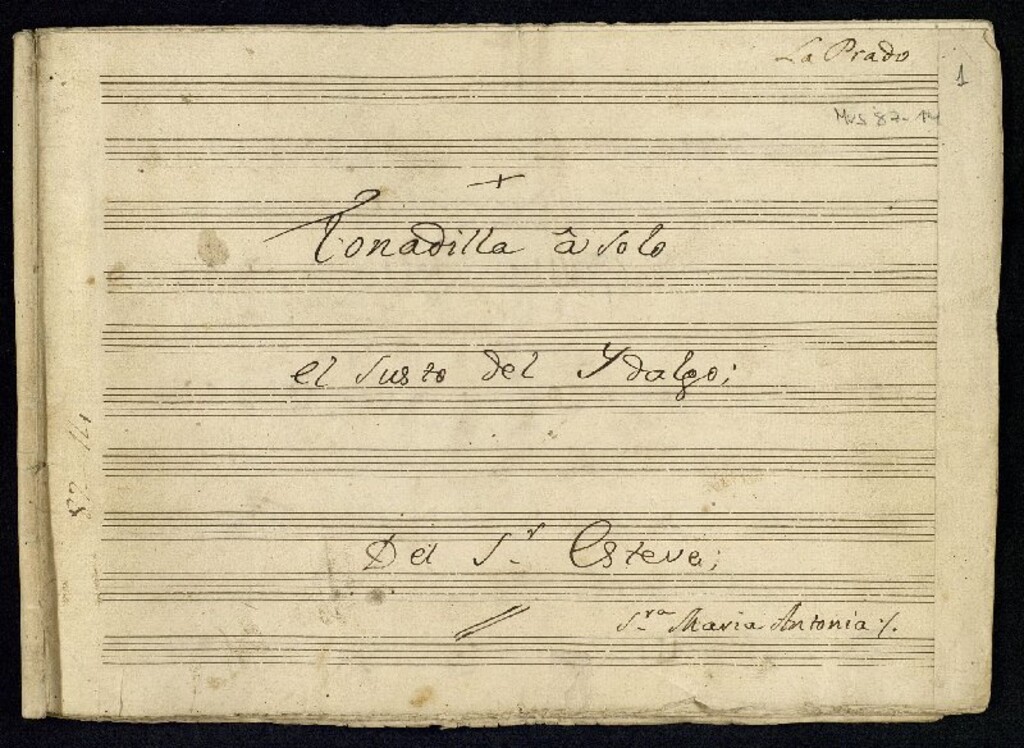 La Prado
1
Mus 87-14
+
Tonadilla â solo
el susto del Ydalgo;
Del S.r Esteve;
S.ra Maria Antonia